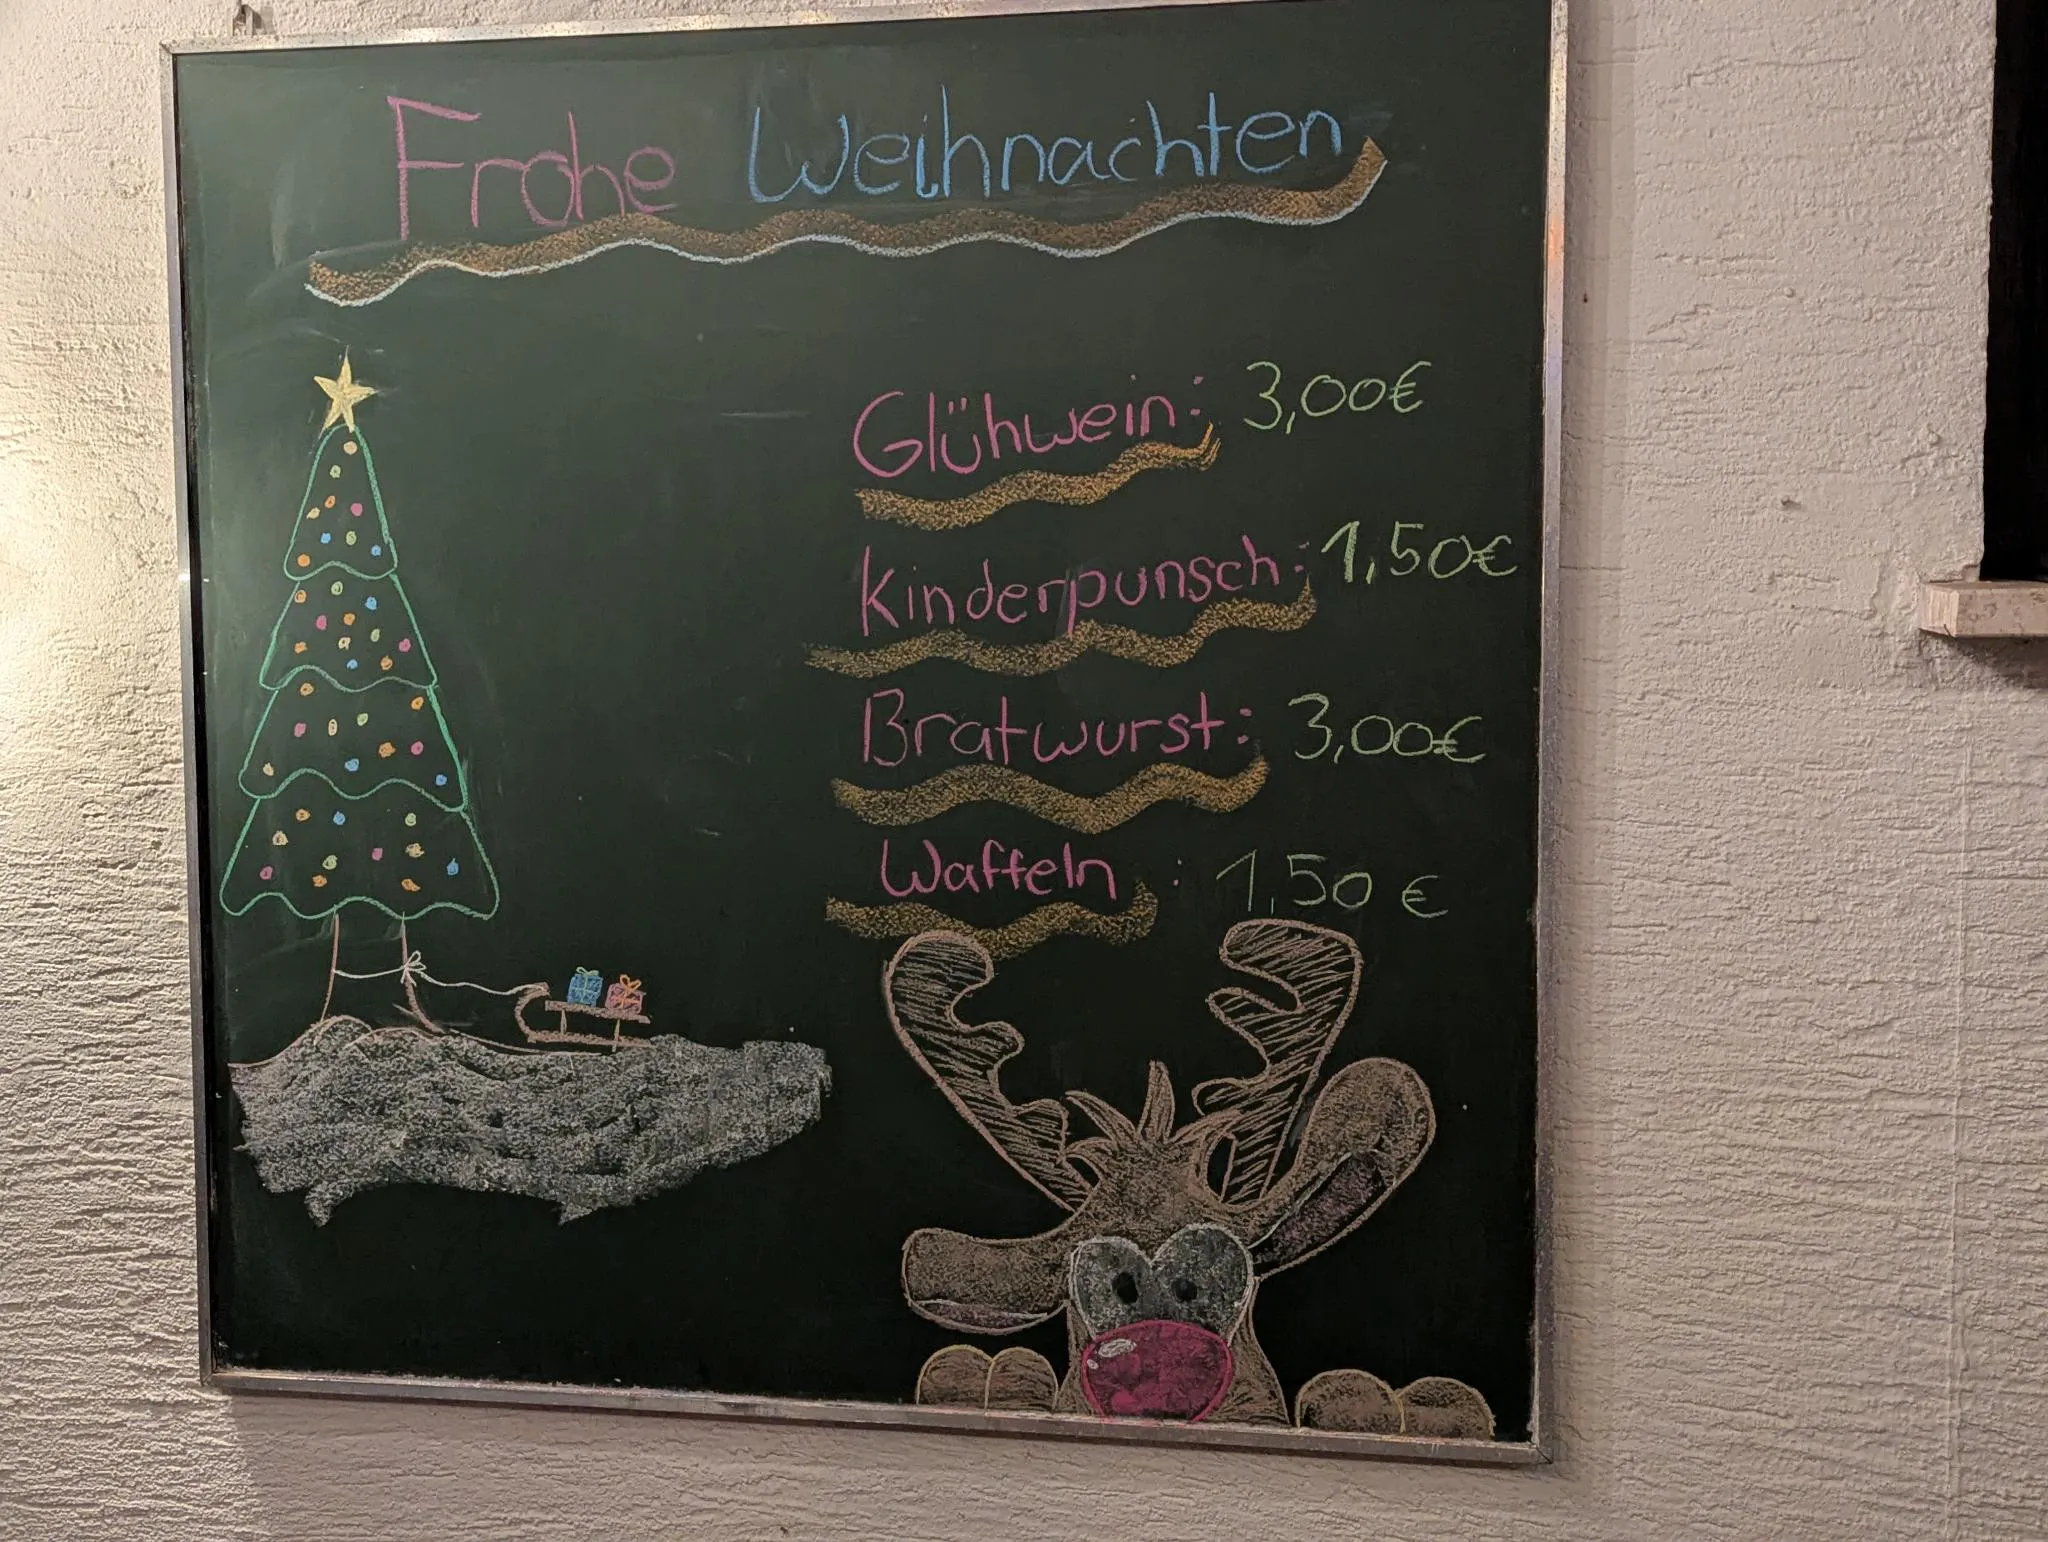 Frohe Weihnachten
Glühwein: 3,00€
Kinderpunsch: 1,50€
Bratwurst: 3,00€
Waffeln : 1,50 €